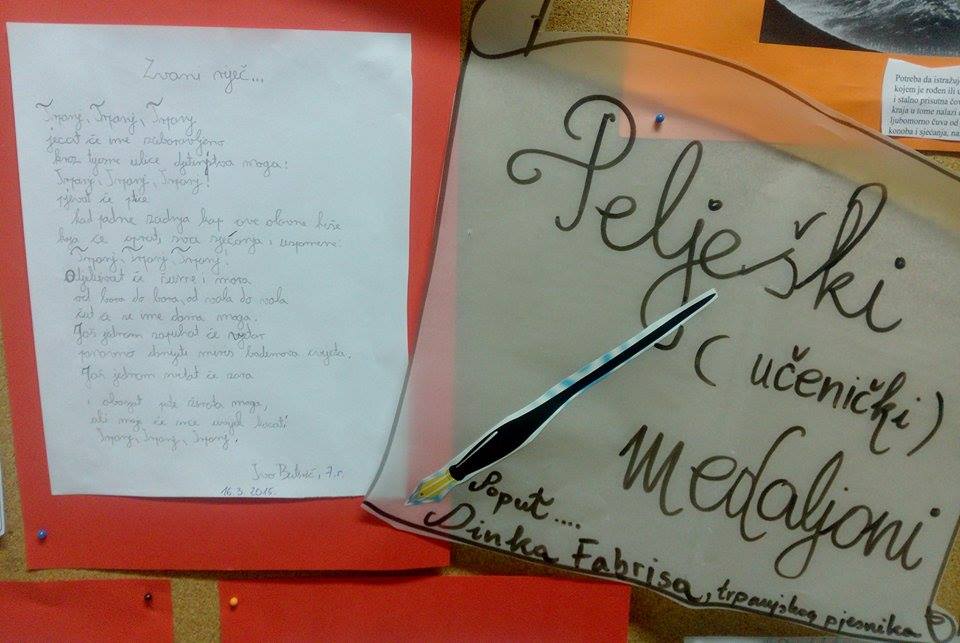 Zvani riječ...
Trpanj, Trpanj, Trpanj
jecat će ime zaboravljeno
kroz tijesne ulice djetinjstva moga:
Trpanj, Trpanj, Trpanj!
pjevat će ptice
kad padne zadnja kap ove olovne kiše
koja će oprati sva sjećanja i uspomene:
Trpanj, Trpanj, Trpanj!
Odjekivat će šume i mora
od bora do bora, od vala do vala
čut će se ime doma moga.
Još jednom zapuhat će vjetar
ponovno donijeti miris bademova cvijeta.
Još jednom svitat će zora
i obasjat moga,
ali moje će srce uvijek kucati
Trpanj, Trpanj, Trpanj.
Ivo 7.r.
16.3.2015.
Pelješki
(učenički)
Medaljoni
Poput....
Dinka Fabrisa, trpanjskog pjesnika
Potreba da istražuj
kojem je rođen ili u
i stalno prisutna čov
kraja u tome nalazi i
ljubomorno čuva od
konoba i sjećanja, na